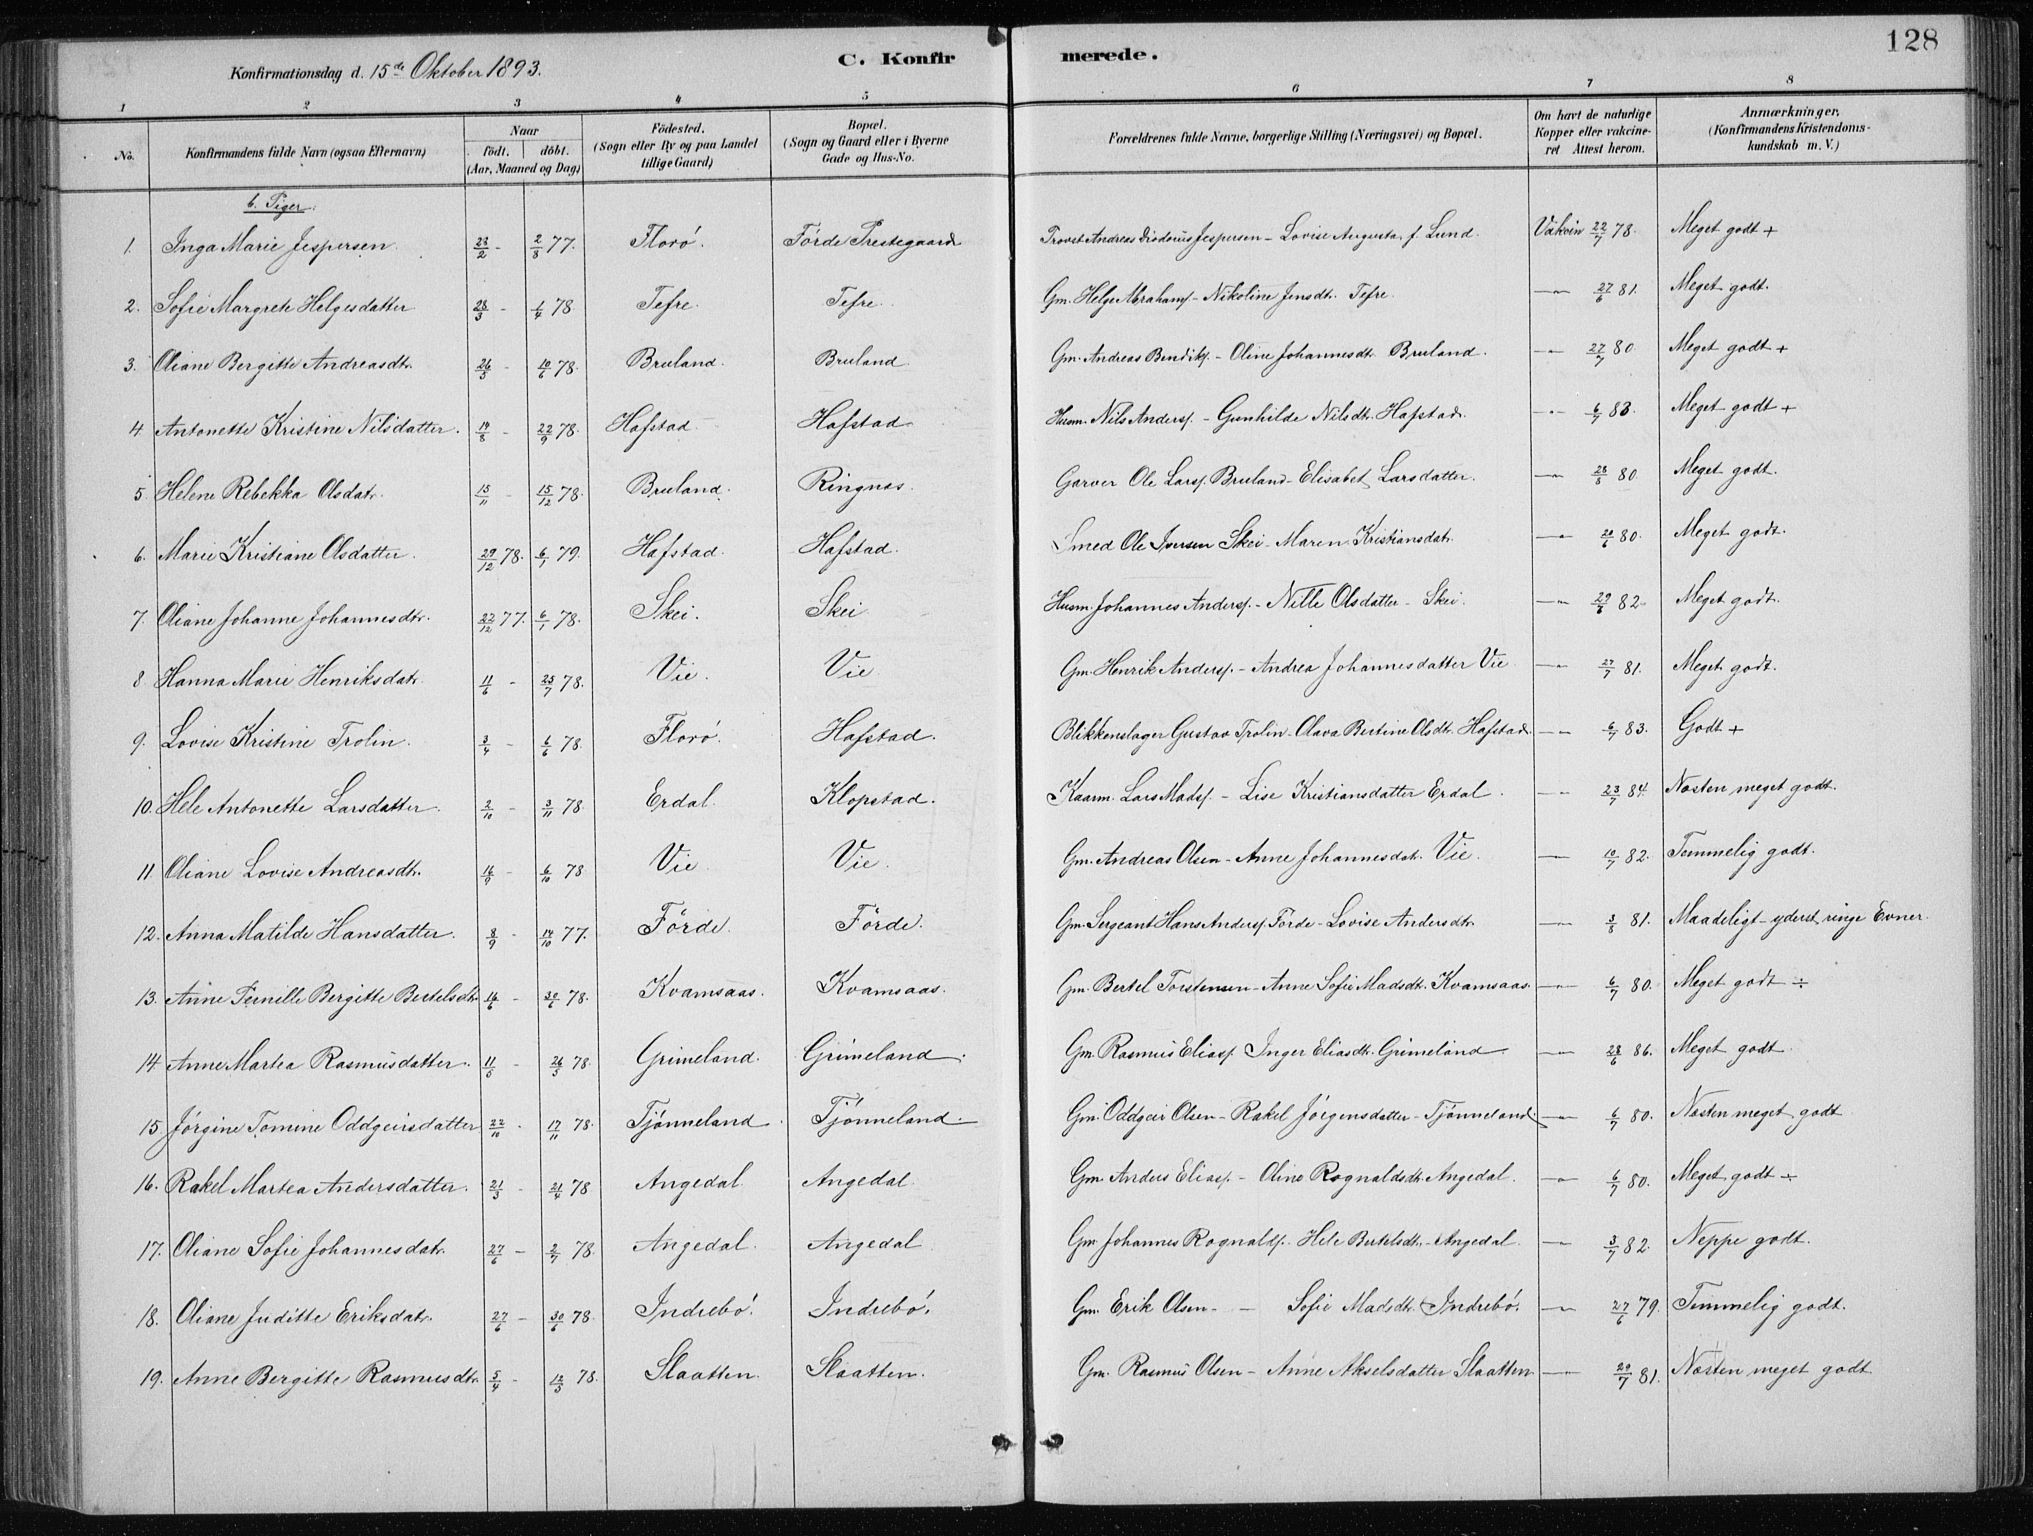 128
Konfirmationsdag d. 15de Oktober 1893.
C. Konfirmerede.
1 2 3 4 5 6 7 8
No. Konfirmandens fulde Navn (ogsaa Efternavn) Naar født. døbt. (Aar, Maaned og Dag) Födested. (Sogn eller By og paa Landet tillige Gaard) Bopæl. (Sogn og Gaard eller i Byerne Gade og Hus-No. Forældrenes fulde Navne, borgerlige Stilling (Næringsvei) og Bopæl. Om havt de naturlige Kopper eller vakcineret Attest herom. Anmærkninger. (Konfirmandens Kristendomskundskab m. V.)
b. Piger.
1. Inga Marie Jespersen 23/2 - 2/8 77. Florö. Förde Prestegaard Provst Andreas Diodorus Jespersen - Lovise Augusta f. Lund. Vakcin 22/7 78. Meget godt +
2. Sofie Margrete Helgesdatter 23/3 - 1/4 78. Tefre. Tefre. Gm. Helge Abrahams. - Nikoline Jensdtr. Tefre. -"- 27/6 81. Meget godt.
3. Oliane Bergitte Andreasdtr. 26/5 - 10/6 78. Bruland. Bruland. Gm. Andreas Bendiks. - Oline Johannesdtr. Bruland. -"- 27/7 80. Meget godt +
4 Antonette Kristine Nilsdatter. 19/8 - 22/9 78. Hafstad Hafstad Husm. Nils Anders. - Gunhilde Nilsdtr. Hafstad. -"- 6/7 83. Meget godt +
5. Helene Rebekka Olsdatr. 15/11 - 15/12 78. Bruland. Ringnæs. Garver Ole Lars. Bruland - Elisabet Larsdatter. -"- 28/8 80. Meget godt.
6. Marie Kristiane Olsdatter. 29/12 78. 6/1 79. Hafstad. Hafstad. Smed Ole Iversen Skei - Maren Kristiansdatr. -"- 20/6 80. Meget godt.
7. Oliane Johanne Johannesdtr. 22/12 77. 6/1 78. Skei. Skei Husm. Johannes Anders. - Nille Olsdatter - Skei. -"- 29/6 82. Meget godt.
8. Hanna Marie Henriksdatr. 11/6 - 25/7 78. Vie. Vie Gm. Henrik Anders. - Andrea Johannesdatter Vie -"- 27/7 81. Meget godt.
9. Lovise Kristine Trolin. 3/4 - 6/6 78. Florö. Hafstad. Blikkenslager Gustav Trolin - Olava Bertine Olsdtr. Hafstad. -"- 6/7 83. Godt +
10. Hele Antonette Larsdatter. 2/10 - 3/11 78. Erdal. Klopstad. Kaarm. Lars Mads. - Lise Kristiansdatter Erdal. -"- 23/7 84. Næsten meget godt.
11. Oliane Lovise Andreasdtr. 16/9 - 6/10 78 Vie Vie. Gm. Andreas Olsen - Anne Johannesdatr. Vie. -"- 10/7 82. Temmelig godt.
12. Anna Matilde Hansdatter. 8/9 - 14/10 77. Förde. Förde. Gm. Sergeant Hans Anders. Förde - Lovise Andersdtr. -"- 3/8 81. Maadeligt - yderst ringe Evner.
13. Anne Pernille Bergitte Bertelsdtr. 14/6 - 30/6 78. Kvamsaas. Kvamsaas. Gm. Bertel Torstensen - Anne Sofie Madsdtr. Kvamsaas. -"- 6/7 80. Meget godt ÷
14 Anne Martea Rasmusdatter. 11/5 - 26/5 78. Grimeland. Grimeland. Gm. Rasmus Elias. Inger Eliasdtr. Grimeland -"- 28/6 86. Meget godt
15 Jörgine Tomine Oddgeirsdatter 22/10 - 17/11 78. Tjönneland. Tjönneland. Gm. Oddgeir Olsen - Rakel Jörgensdatter - Tjönneland. -"- 6/7 80. Næsten meget godt
16. Rakel Martea Andersdatter. 21/3 - 21/4 78 Angedal Angedal Gm. Anders Elias. - Oline Rognaldsdtr. Angedal. -"- 6/7 80. Meget godt ÷
17. Oliane Sofie Johannesdatr. 27/6 - 2/7 78. Angedal. Angedal Gm. Johannes Rognalds. Hele Bertelsdtr. - Angedal. -"- 3/7 82. Neppe godt.
18. Oliane Juditte Eriksdatr. 27/6 - 30/6 78. Indrebö. Indrebö. Gm. Erik Olsen - - Sofie Madsdtr. Indrebö. -"- 27/6 79. Temmelig godt.
19. Anne Bergitte Rasmusdtr. 5/4 - 12/5 78. Slaatten. Slaatten. Gm. Rasmus Olsen - Anne Akselsdatter Slaatten -"- 20/7 81. Næsten meget godt